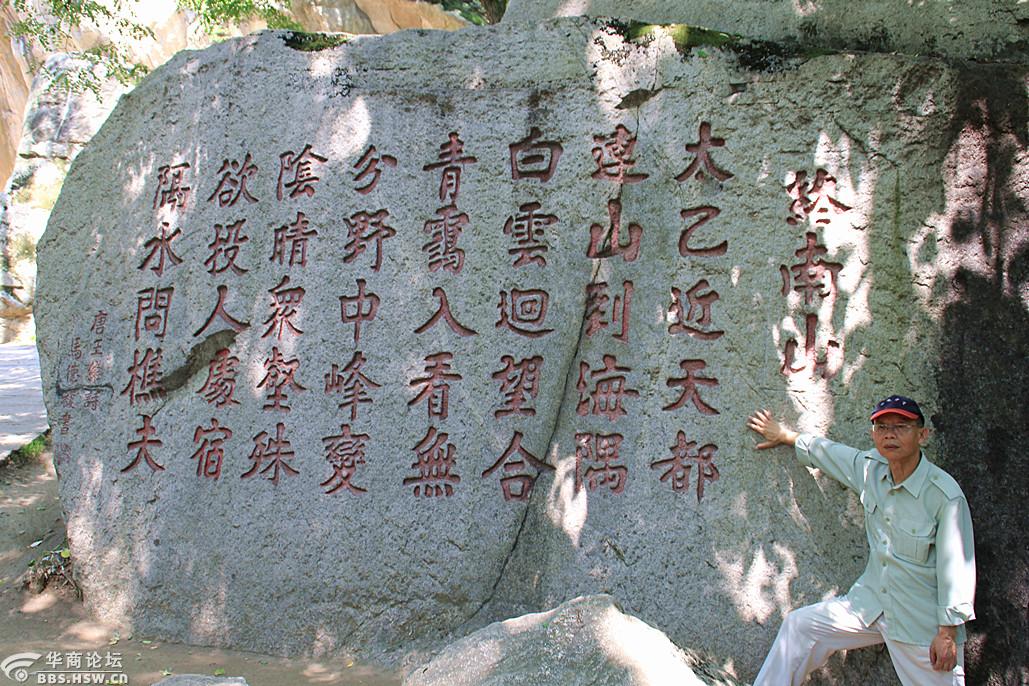 终南山
太乙近天都
連山到海隅
白雲迴望合
青靄入看無
分野中峰變
陰晴衆壑殊
欲投人處宿
隔水問樵夫
唐王維詩
書
华商论坛
BBS.HSW.CN